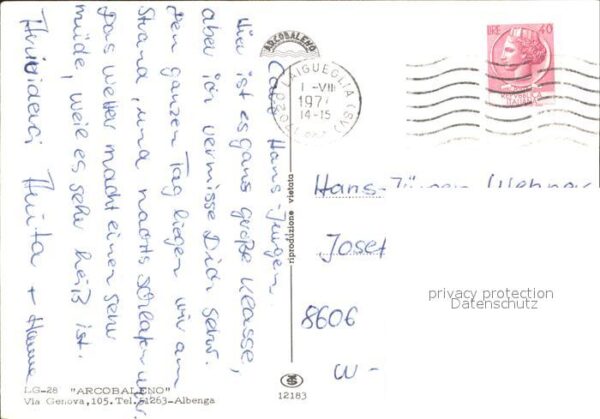 Ciao Hans-Jürgen.
Hier ist es ganz große Klasse,
aber ich vermisse Dich sehr.
Den ganzen Tag liegen wir am
Strand, und nachts schlafen wir.
Das Wetter macht einen sehr
müde, weil es sehr heiß ist.
Arrividerci Anita +
ARCOBALENO
LAIGUEGLIA (SV)
1-VIII
1977
14-15
17020
LIRE 40
riproduzione vietata
Hans-Jürgen
Josef
8606
W-
privacy protection
Datenschutz
LG-28 "ARCOBALENO"
Via Genova,105.Tel.51263-Albenga
12183